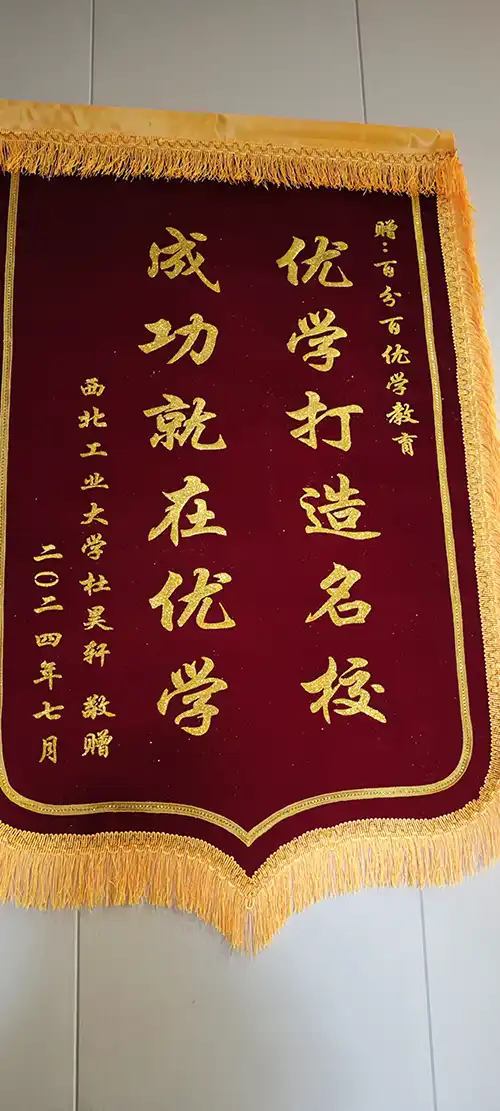 赠：百分百优学教育
优学打造名校
成功就在优学
西北工业大学杜昊轩 敬赠
二〇二四年七月